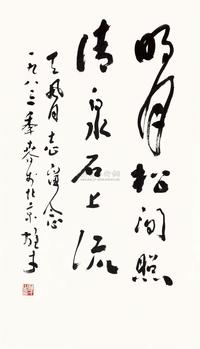 明月松间照
清泉石上流
天风同志留念
一九八三年春于北京